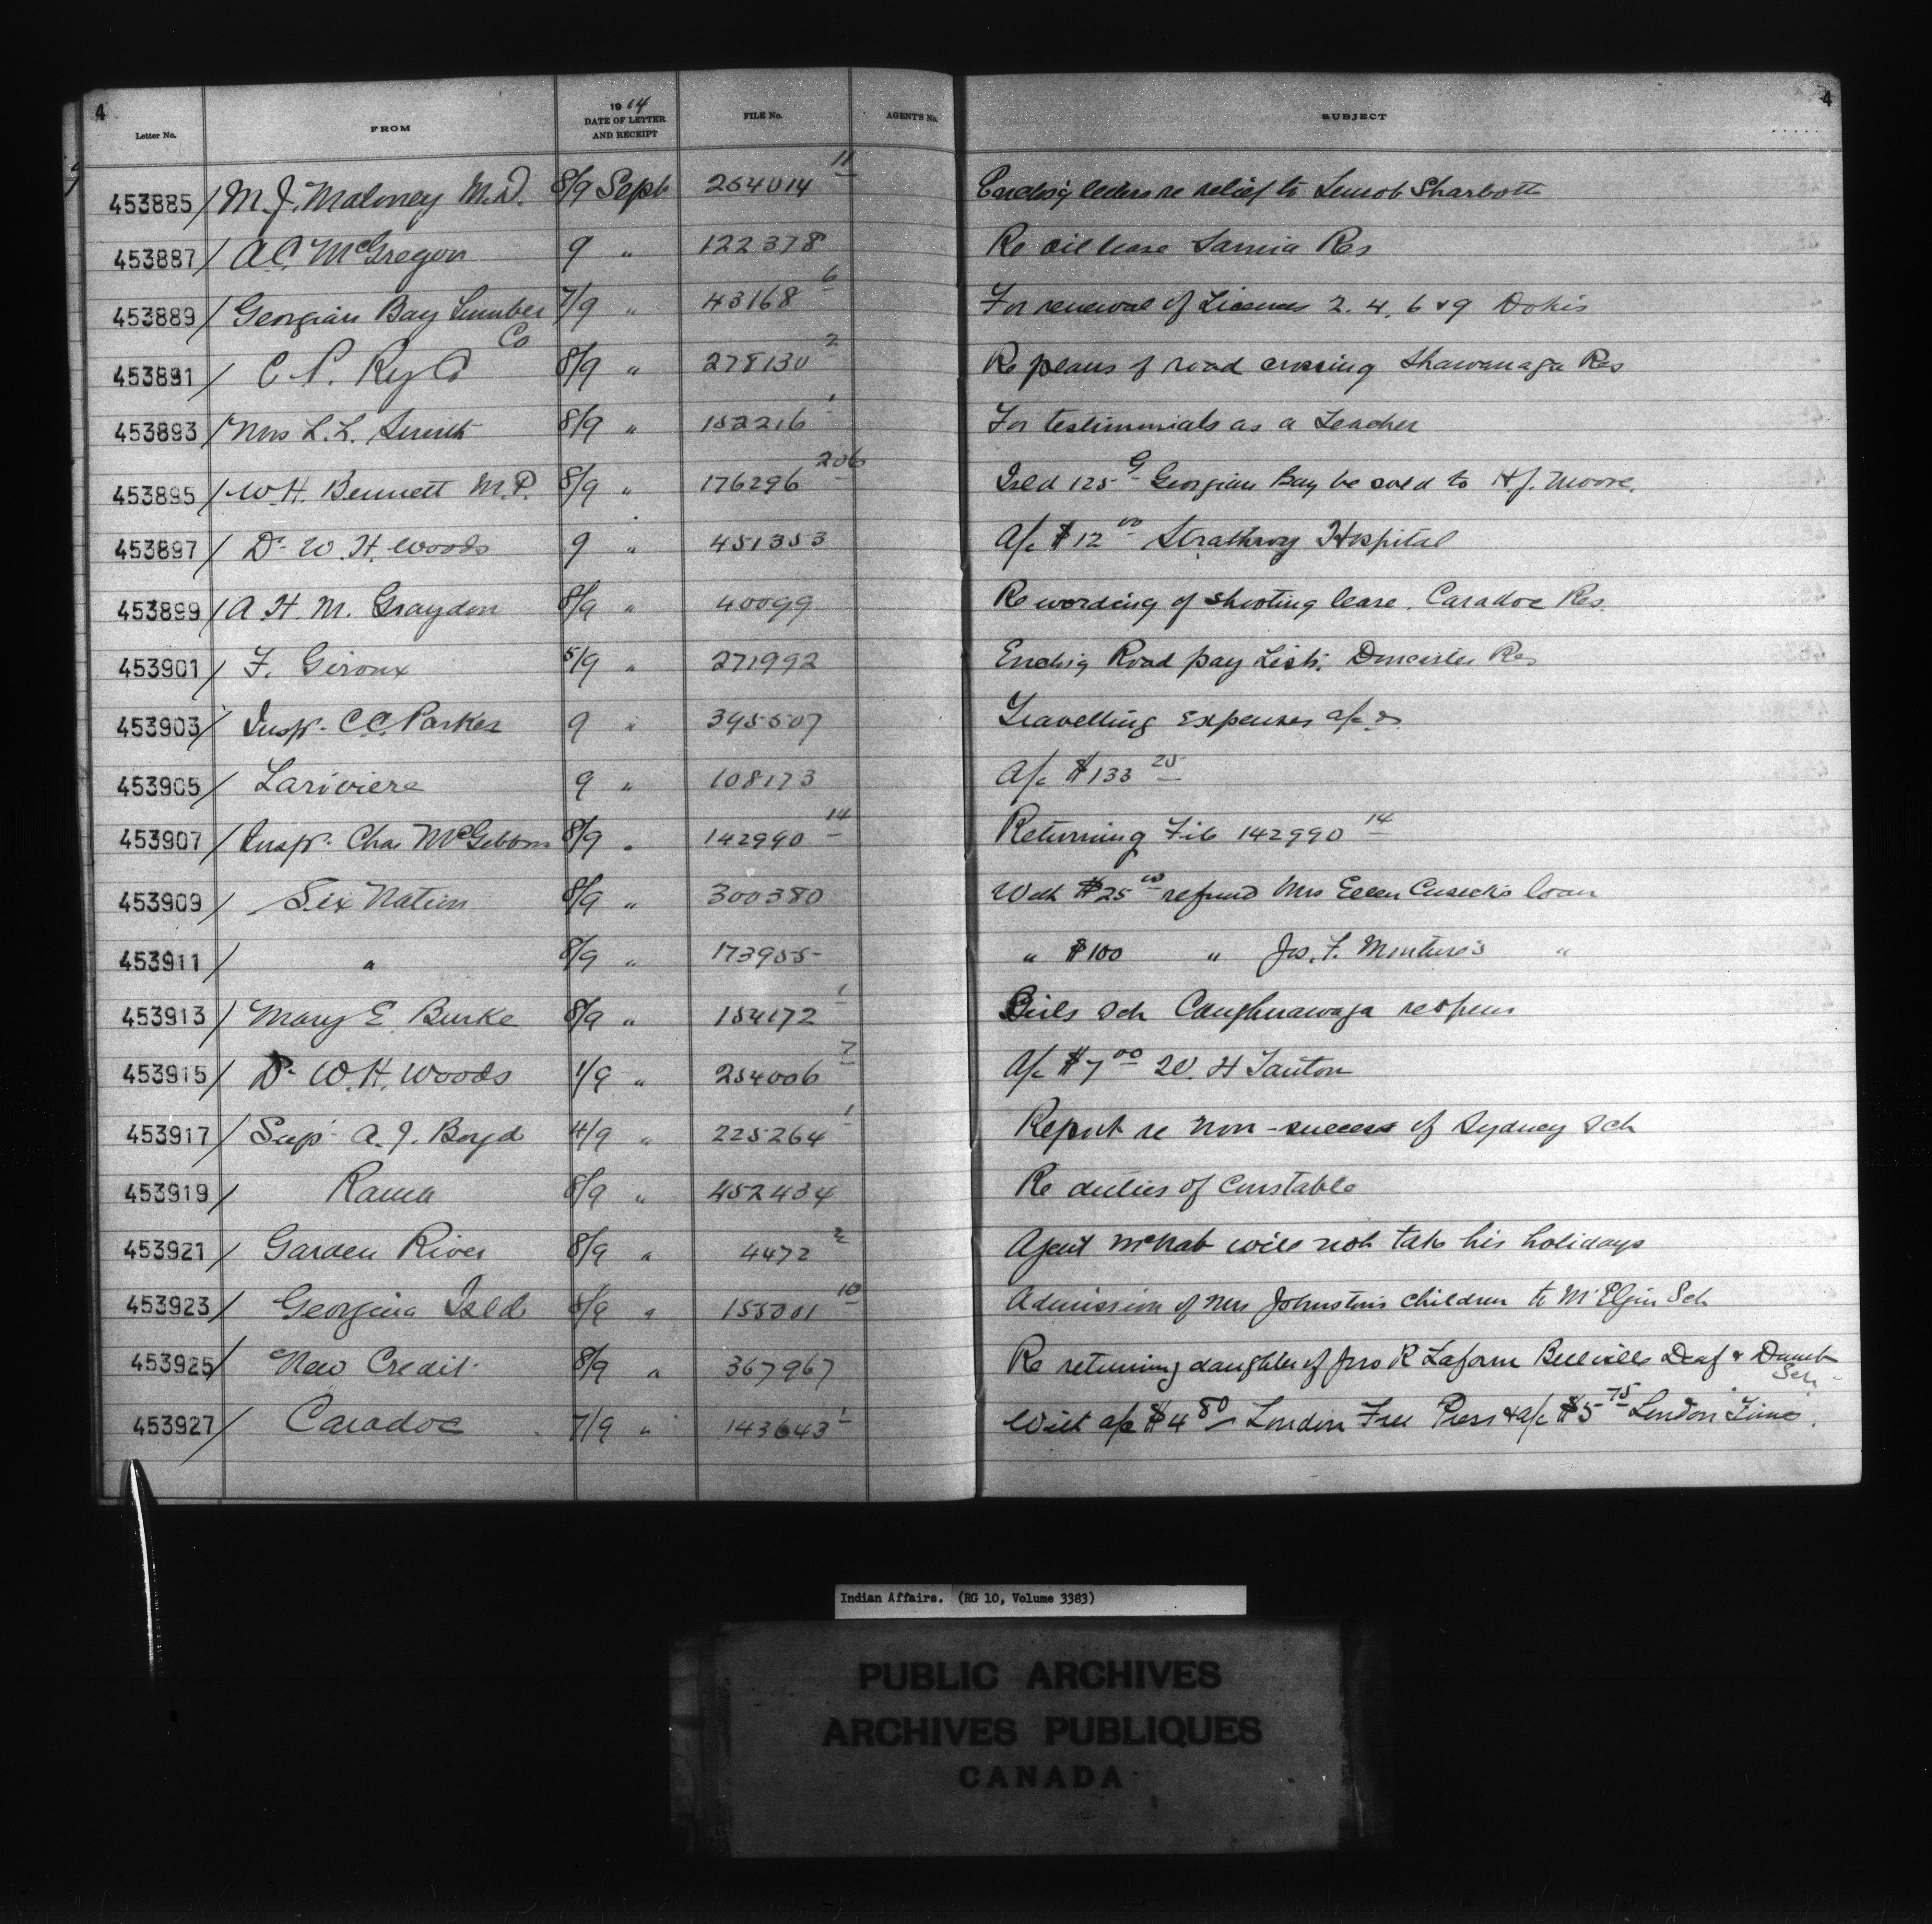 4 4
Letter No. FROM 1914 DATE OF LETTER AND RECEIPT FILE No. AGENT'S No. SUBJECT
453885 / M. J. Maloney M.D. 8/9 Sept 254014 11 Enclosg letters re relief to Sharbott
453887 / A.C. McGregor 9 " 122378 Re oil lease Sarnia Res
453889 / Georgian Bay Lumber Co 7/9 " 43168 6 For renewal of Licenses 2. 4. 6 & 9 Dokis
453891 / C P. Ry Co 8/9 " 278130 2 Re plans of road crossing Shawanaga Res
453893 / Mrs L. L. Smith 8/9 " 152216 1 For testimonials as a Teacher
453895 / W. H. Bennett M.P. 8/9 " 176296 206 Isld 125 G Georgian Bay be sold to H. J. Moore.
453897 / Dr W. H. Woods 9 " 451353 A/c $12 00 Strathroy Hospital
453899 / A. H. M. Graydon 8/9 " 40099 Re wording of shooting lease. Caradoc Res.
453901 / F. Giroux 5/9 " 271992 Enclosg Road pay List. Doncaster Res
453903 / Insp. C.C. Parker 9 " 395507 Travelling expenses a/c
453905 / Lariviere 9 " 108173 A/c $133 25
453907 / Insp. Chas McGibbon 8/9 " 142990 14 Returning File 142990 14
453909 / Six Nation 8/9 " 300380 With $25 00 refund Mrs Ellen Cusick's loan
453911 / " 8/9 " 173955 " $100 " Jos. F. Monture's "
453913 / Mary E. Burke 8/9 " 154172 1 Girls Sch Caughnawaga reopens
453915 / Dr W. H. Woods 1/9 " 254006 7 A/c $7 00 W. H Tanton
453917 / Supt A. J. Boyd 4/9 " 225264 1 Report re non-success of Sydney Sch
453919 / Rama 8/9 " 452434 Re duties of Constable
453921 / Garden River 8/9 " 4472 2 Agent McNab will not take his holidays
453923 / Georgina Isld 8/9 " 155001 10 Admission of Mrs Johnston's children to Mt Elgin Sch
453925 / New Credit 8/9 " 367967 Re returning daughter of Jno R Laform Belleville Deaf & Dumb Sch
453927 / Caradoc 7/9 " 143643 1 With a/c $4 80 London Free Press & a/c $5 75 London Times.
Indian Affairs. (RG 10, Volume 3383)
PUBLIC ARCHIVES
ARCHIVES PUBLIQUES
CANADA